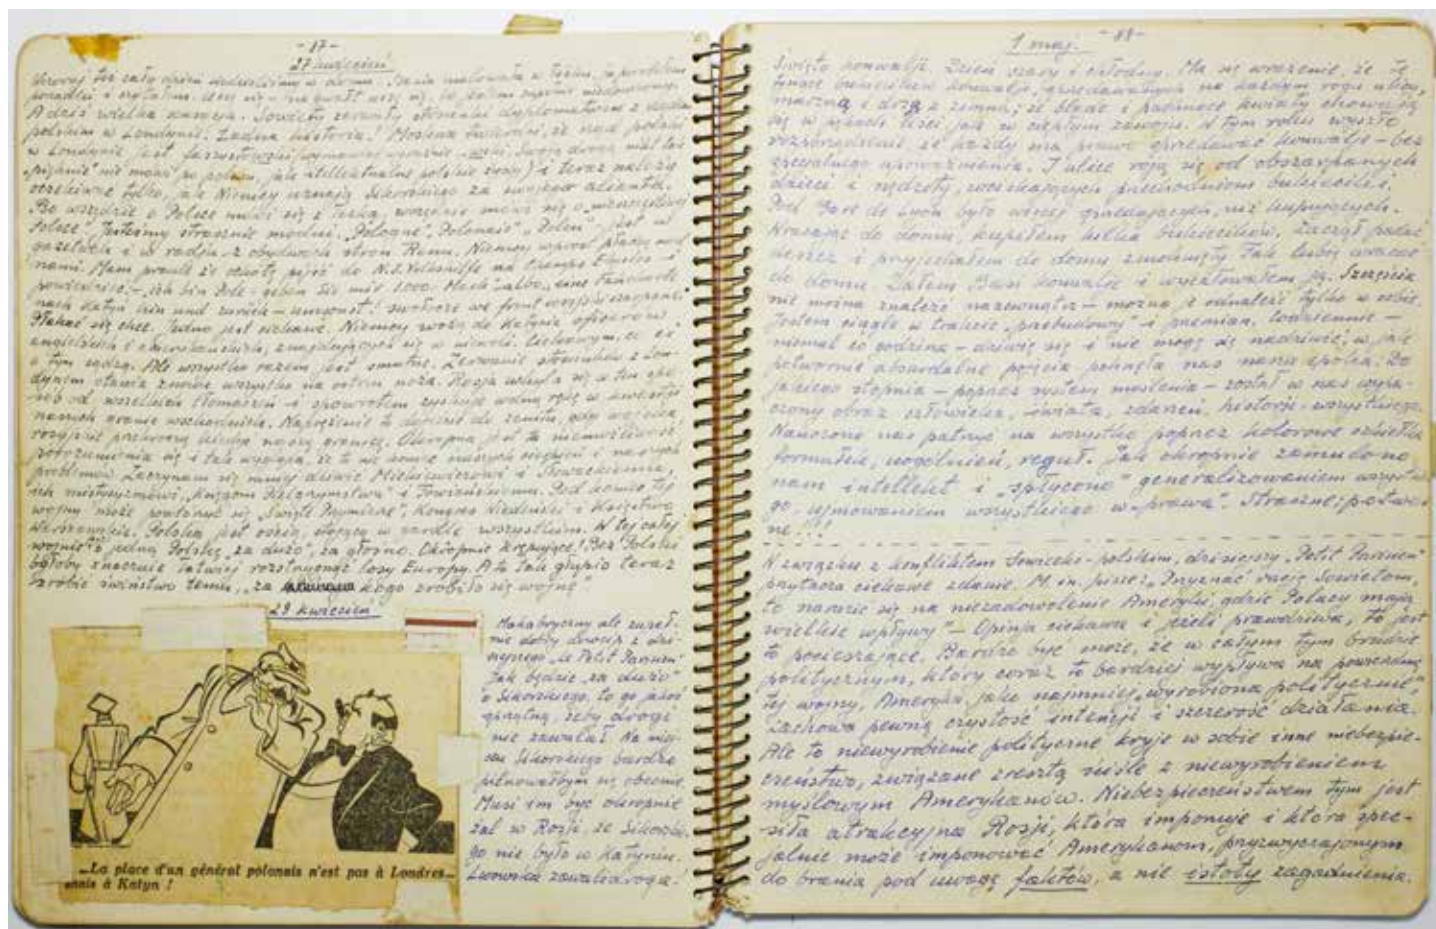 -87-
27 kwiecień
Wczoraj też cały dzień siedzieliśmy w domu. Basia malowała w łóżku, ja
A dziś wielka sensacja. Sowiety zerwały stosunki dyplomatyczne z rządem
polskim w Londynie. Ładna historia! Moskwa twierdzi, że rząd polski
w Londynie jest
i teraz należy
oczekiwać tylko, że Niemcy uznają Sikorskiego za swojego alianta.
Bo wszędzie o Polsce mówi się z łezką, wszędzie mówi się o „nieszczęśliwej
Polsce". Jesteśmy strasznie modni. „Pologne", „Polonais", „Polen" jest w
gazetach i w radjo z obydwóch stron Renu. Niemcy wprost płaczą nad
nami. Mam prawie że ochotę pójść do N.S. Volkswilfe na Champs Elysées i
powiedzieć: – „ich bin Pole – geben Sie mir 1000 Mark" albo „eine Fahrkarte
nach Katyn hin und zurück – umsonst!
Płakać się chce. Jedno jest ciekawe. Niemcy wożą do Katynia oficerów
angielskich i amerykańskich, znajdujących się w niewoli. Ciekawym, co ci
o tym sądzą. Ale wszystko razem jest smutne. Zerwanie stosunków z Lon-
dynem stawia znowu wszystko na ostrzu noża. Rosja uchyla się w ten spo-
sób od wszelkich tłomaczeń i spowrotem zyskuje wolną rękę w kwestji
naszych granic wschodnich. Naprężenie to dojdzie do zenitu, gdy wojska
rosyjskie przekroczą kiedyś naszą granicę. Okropna jest ta niemożliwość
porozumienia się i tak wygląda, że to nie koniec naszych cierpień i naszych
problemów. Zaczynam się mniej dziwić Mickiewiczowi i Słowackiemu,
ich mistycyzmowi, „Księgom Pielgrzymstwa" i Towiańskiemu. Pod koniec tej
wojny może powtórzyć się „Święte Przymierze", Kongres Wiedeński i Księstwo
Warszawskie. Polska jest ością, stojącą w gardle wszystkim. W tej całej
wojnie o jedną Polskę „za dużo", za głośno. Okropnie krępujące! Bez Polski
byłoby znacznie łatwiej rozstrzygnąć losy Europy. A to tak głupio teraz
zrobić świństwo temu, „za kogo zrobiło się wojnę".
29 kwiecień
Makabryczny ale zupeł-
nie dobry dowcip z dzi-
siejszego „Le Petit Parisien"
Jak będzie „za dużo"
o Sikorskiego, to go jakoś
sprzątną, żeby drogi
nie zawalał. Na miej-
scu Sikorskiego bardzo
pilnowałbym się obecnie.
Musi im być okropnie
żal w Rosji, że Sikorskie-
go nie było w Katyniu.
zawalidroga!
...La place d'un général polonais n'est pas à Londres...
mais à Katyn !
1 maj. -88-
Święto konwalji. Dzień szary i chłodny. Ma się wrażenie, że te
tysiące bukiecików konwalji, sprzedawanych na każdym rogu ulicy,
marzną i drżą z zimna; że blade i pachnące kwiaty chowają
się w swoich liści jak w ciepłym szalu. W tym roku wyszło
rozporządzenie, że każdy ma prawo sprzedawać konwalje – bez
specjalnego upoważnienia. I ulice roją się od obszarpanych
dzieci i nędzoty, wciskających przechodniom bukieciki.
Pod Gare de Lyon było więcej sprzedających, niż kupujących.
Wracając do domu, kupiłem kilka bukiecików. Zaczął padać
deszcz i przyjechałem do domu zmoknięty. Tak lubię wracać
do domu. Dałem Basi konwalje i wycałowałem ją. Szczęścia
nie można znaleźć nazewnątrz – można je odnaleźć tylko w sobie.
Jestem ciągle w trakcie „przebudowy" i przemian. Codziennie –
niemal co godzina – dziwię się i nie mogę się nadziwić, w jak
potwornie absurdalne pojęcia pchnęła nas nasza epoka. Do
jakiego stopnia – poprzez system myślenia – został w nas wypa-
czony obraz człowieka, świata, zdarzeń, historji – wszystkiego.
Nauczono nas patrzyć na wszystko poprzez kolorowe szkiełka
formułek, uogólnień, reguł. Jak okropnie zamulono
nam intellekt i „spłycono" generalizowaniem wszystkie-
go – ujmowaniem wszystkiego w „prawa". Straszne; potwor-
ne...!!!
W związku z konfliktem sowiecko-polskim, dzisiejszy „Petit Parisien"
przytacza ciekawe zdanie. M. in. pisze: „Przyznać rację Sowietom,
to narazić się na niezadowolenie Ameryki, gdzie Polacy mają
wielkie wpływy" – Opinja ciekawa i jeżeli prawdziwa, to jest
to pocieszające. Bardzo być może, że w całym tym brudzie
politycznym, który coraz to bardziej wypływa na powierzchnię
tej wojny, Ameryka, jako najmniej „wyrobiona politycznie",
zachowa pewną czystość intencji i szczerość działania.
Ale to niewyrobienie polityczne kryje w sobie inne niebezpie-
czeństwo, związane zresztą ściśle z niewyrobieniem
myślowym Amerykanów. Niebezpieczeństwem tym jest
siła atrakcyjna Rosji, która imponuje i która spec-
jalnie może imponować Amerykanom, przyzwyczajonym
do brania pod uwagę faktów, a nie istoty zagadnienia.